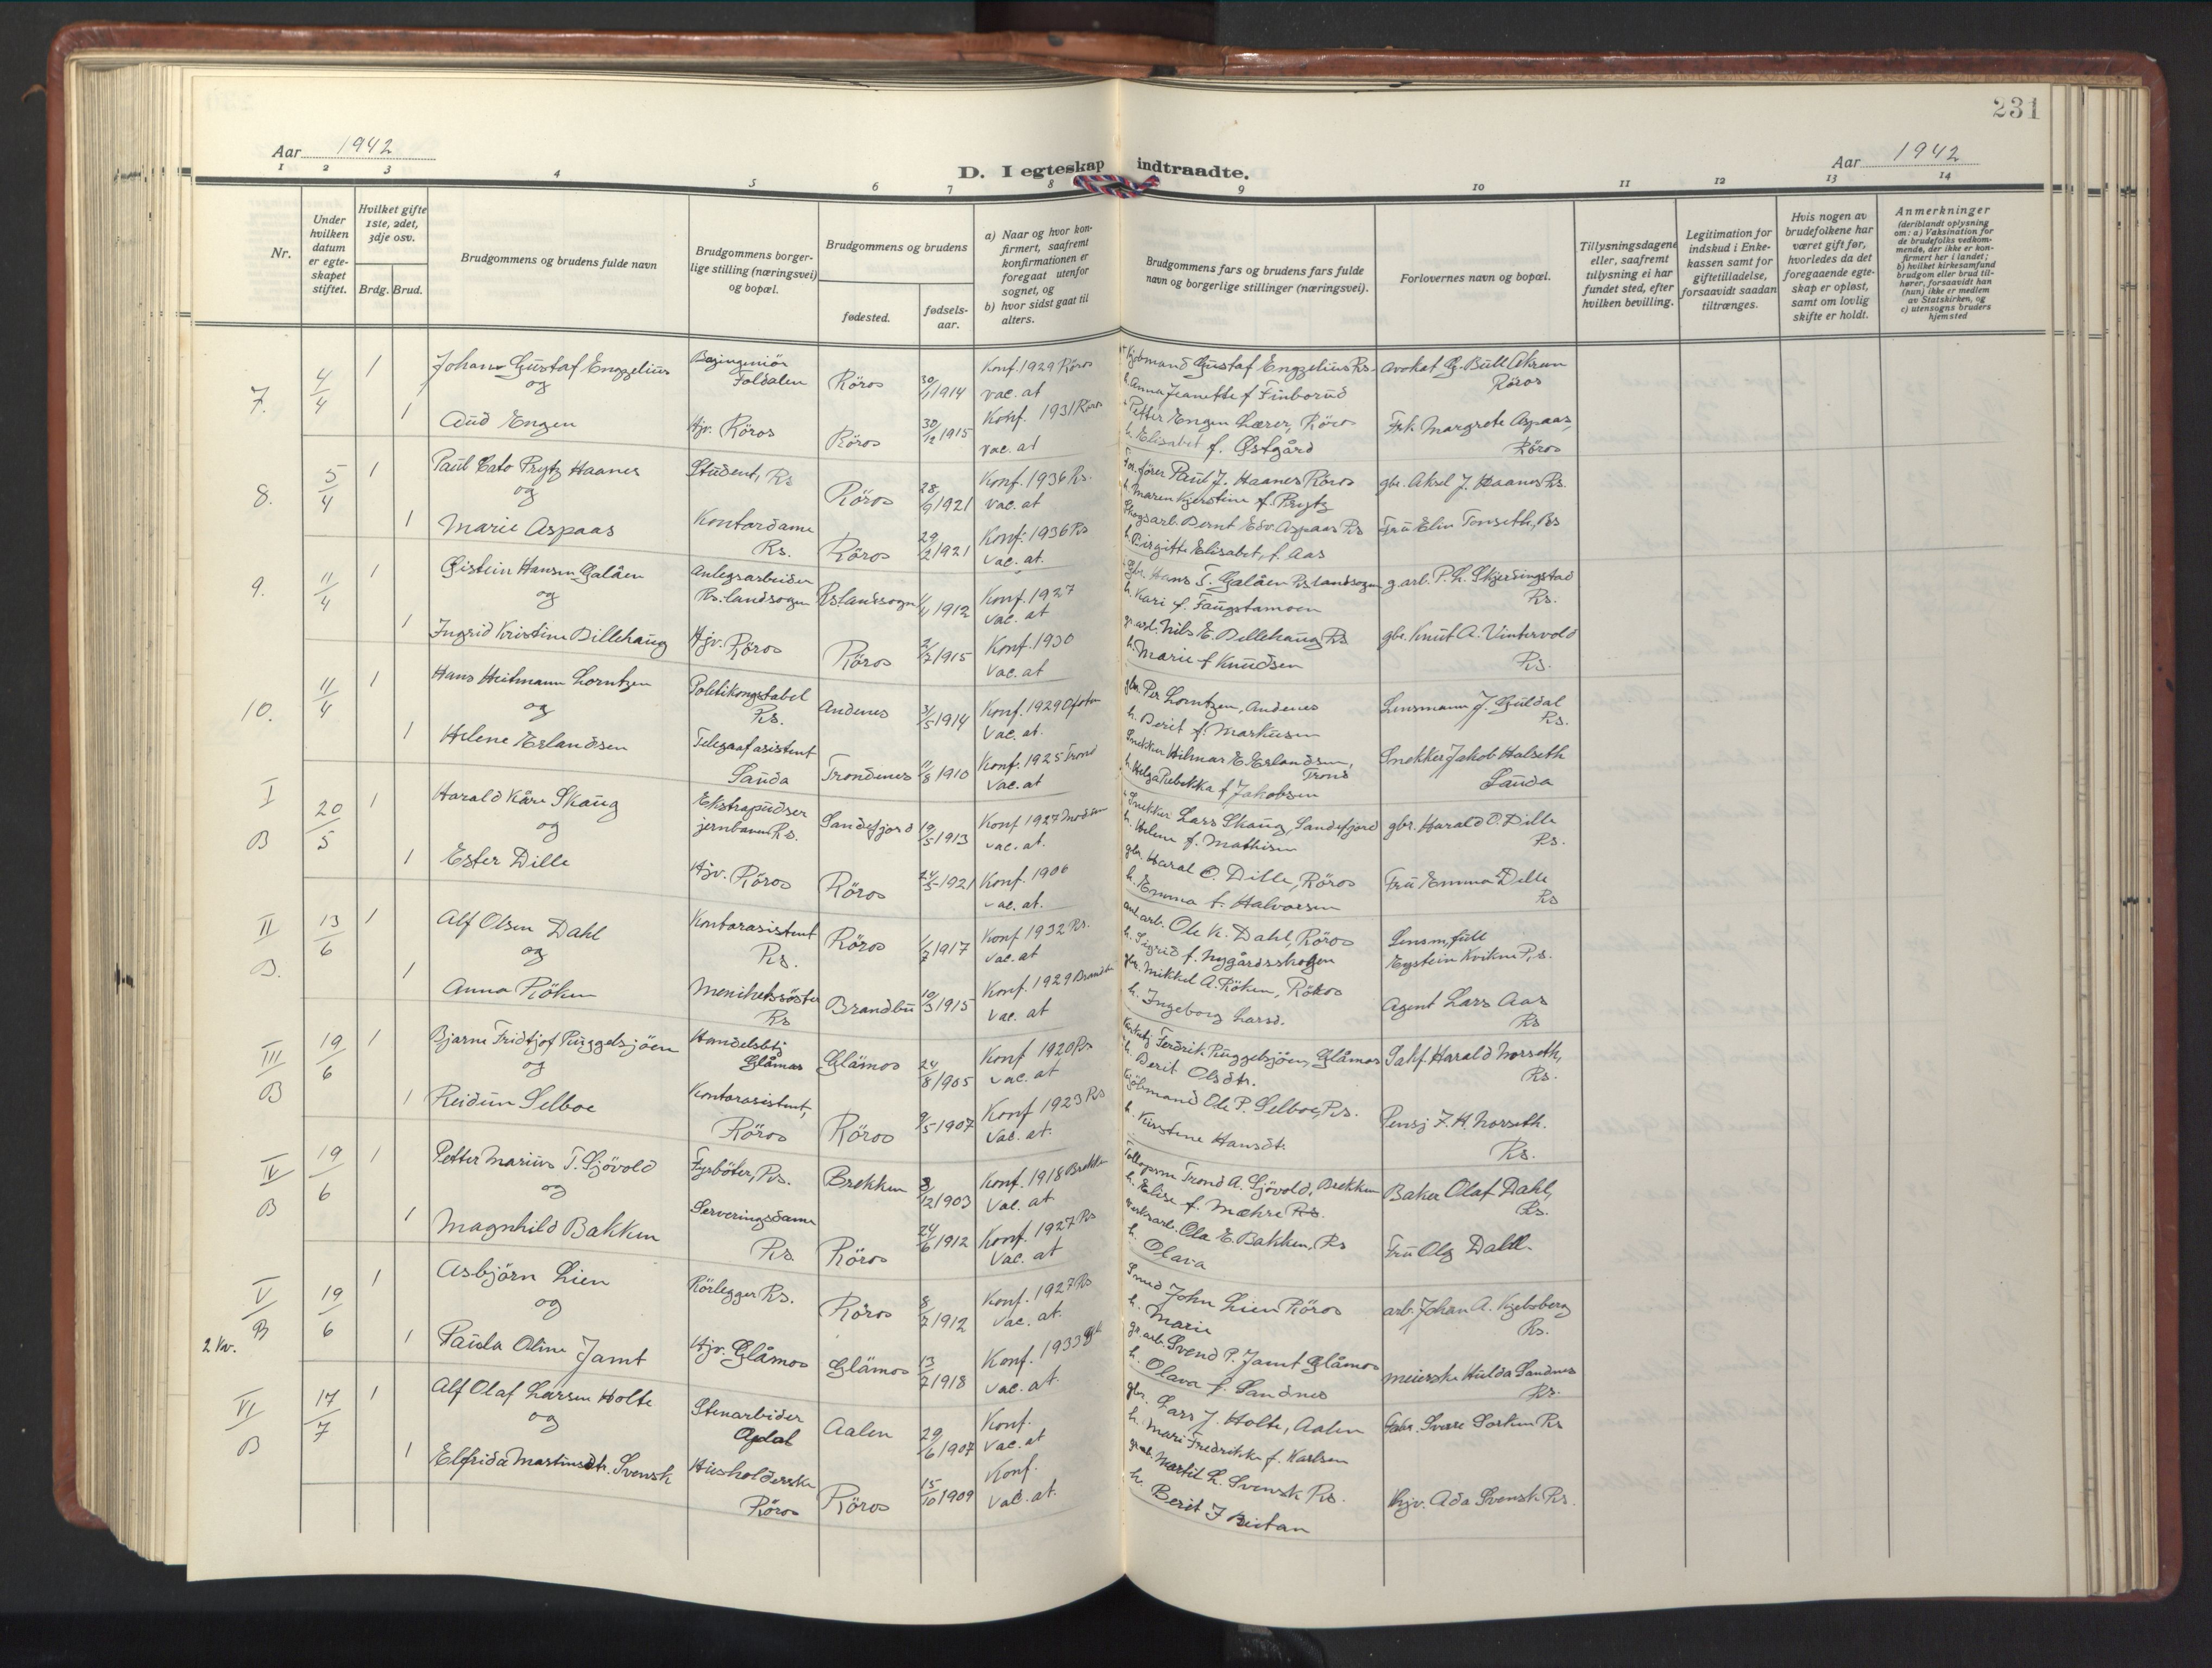 231
Aar 1942
Aar 1942
D. I egteskap indtraadte.
1 2 3 4 5 6 7 8 9 10 11 12 13 14
Nr.
Under hvilken datum er egte-skapet stiftet.
Hvilket gifte 1ste, 2det, 3dje osv.
Brdg. Brud.
Brudgommens og brudens fulde navn
Brudgommens borger-lige stilling (næringsvei) og bopæl.
Brudgommens og brudens
fødested.
fødsels-aar.
a) Naar og hvor kon-firmert, saafremt konfirmationen er foregaat utenfor sognet, og
b) hvor sidst gaat til alters.
Brudgommens fars og brudens fars fulde navn og borgerlige stillinger (næringsvei).
Forlovernes navn og bopæl.
Tillysningsdagene eller, saafremt tillysning ei har fundet sted, efter hvilken bevilling.
Legitimation for indskud i Enke-kassen samt for giftetilladelse, forsaavidt saadan tiltrænges.
Hvis nogen av brudefolkene har været gift før, hvorledes da det foregaaende egte-skap er opløst, samt om lovlig skifte er holdt.
Anmerkninger (deriblandt oplysning om: a) Vaksination for de brudefolks vedkom-mende, der ikke er kon-firmert her i landet; b) hvilket kirkesamfund brudgom eller brud til-hører, forsaavidt han (hun) ikke er medlem av Statskirken, og c) utensogns bruders hjemsted
7. 4/4 1 Johan Gustaf Engzelius Bergingeniør Foldalen Röros 30/1 1914 Konf. 1929 Röros vac. at Kjöbmand Gustaf Engzelius Rs. h. Anna Jeanette f Finborud Avokat G. Bull Akran Röros
og
1 Aud Engen Hjv. Röros Röros 30/12 1915 Konf. 1931 Röros vac. at Petter Engen Lærer, Röros h. Elisabet f. Østgård Frk. Margrete Aspaas, Röros
8. 5/4 1 Paul Cato Prytz Haanes Student, Rs Röros 28/9 1921 Konf. 1936 Rs. vac. at Paul J. Haanes Röros h. Maren Kjerstine f. Prytz gbr. Aksel J. Haanes Rs.
og
1 Marie Aspaas Kontordame Rs. Röros 29/2 1921 Konf. 1936 Rs vac. at. Skogsarb. Bernt Edv. Aspaas Rs h. Birgitte Elisabet, f. Aas Fru Elin Tonseth, Rs
9. 11/4 1 Øistein Hansen Galåen Anlegsarbeider Rs. landsogn Rs landsogn 1/4 1912 Konf. 1927 vac. at Gbr. Hans T. Galåen Rs landsogn h. Kari f. Taugstamoen g. arb. P. L. Skjerdingstad Rs.
og
1 Ingrid Kristine Dillehaug Hjv. Röros Röros 2/7 1915 Konf. 1930 vac. at gr. arb. Nils E. Dillehaug Rs h. Marie f Knudsen gbr. Knut A. Vintervold Rs.
10. 11/4 1 Hans Heitmann Lorntzen Politikonstabel Rs. Andenes 31/5 1914 Konf. 1929 Ofoten vac. at. gbr. Per Lorntzen, Andenes h. Berit f. Markusen Lensmann J. Guldal Rs.
og
1 Helene Erlandsen Telegrafasistent Sauda Trondenes 11/8 1910 Konf. 1925 Trond vac. at Snekker Hilmar E. Erlandsen, Trond h. Helga Rebekka f Jakobsen Snekker Jakob Halseth Sauda
I B 20/5 1 Harald Kåre Skaug Ekstrapudser jernbanen Rs. Sandefjord 19/5 1913 Konf 1927 vac. at. Snekker Lars Skaug, Sandefjord h. Helene f. Mathisen gbr. Harald O. Dille Rs.
og
1 Ester Dille Hjv. Röros Röros 24/5 1921 Konf. 1906 vac. at. gbr Haral O. Dille, Röros h. Emma f. Halvorsen Fru Emma Dille Rs
II B. 13/6 1 Alf Olsen Dahl Kontorasistent Rs. Röros 1/7 1917 Konf 1932 Rs. vac. at anl. arb. Ole K. Dahl, Röros h. Sigrid f. Nygårdsshaugen Lensm. full Eystein Kvikne Rs.
og
1 Anna Röken Menihetssöster Rs Brandbu 10/3 1915 Konf. 1929 Brandbu vac. at gbr. Mikkel A. Röken, Röros h. Ingeborg Larsd. Agent Lars Aas Rs
III B 19/6 1 Bjarne Fridtjof Ruggelsjöen Handelsbtj Glåmos Glåmos 24/8 1905 Konf 1920 Rs vac. at Ferdrik Ruggelsjöen, Glåmos h. Berit Olsdtr. Sahf. Harald Norseth, Rs.
og
1 Reidun Selboe Kontorasistent, Röros Röros 9/5 1907 Konf 1923 Rs vac. at. Kjöbmand Ole P. Selboe, Rs. h. Kirstine Hansdt. Pensj J. H. Norseth. Rs.
IV B 19/6 1 Petter Marius T. Sjövold Fyrböter, Rs. Brekken 3/12 1903 Konf. 1918 Brekken vac. at Trond A. Sjövold, Brekken h. Elise f. Mæhre Rs. Baker Olaf Dahl, Rs.
og
1 Magnhild Bakken Serveringsdame Rs. Röros 24/6 1912 Konf. 1927 Rs vac. at Verksarb. Ola E. Bakken, Rs h. Olava Fru Olg Dahl.
V B 19/6 1 Asbjörn Lien Rörlegger Rs. Röros 8/7 1912 Konf. 1927 Rs vac. at. Smed John Lien Röros h. Marie arb. Johan A. Kjelsberg Rs.
og
2 Kv. 1 Paula Oline Jamt Hjv. Glåmos Glåmos 13/7 1918 Konf. 1933 vac. at. gr. arb. Svend P. Jamt Glåmos h. Olava f. Sandnes meierske Hulda Sandnes Rs.
VI B 17/7 1 Alf Olaf Larsen Holte Stenarbider Opdal Aalen 29/6 1907 Konf. vac. at gbr. Lars J. Holte, Aalen h. Mari Fredrikke f. Karlsen Sverre Sorken Rs
og
1 Elfrida Martinsdtr. Svensk Husholderske Röros Röros 15/10 1909 Konf. vac. at. gr. arb. Martil L. Svensk Rs. h. Berit J Bistan Hjv. Ada Svensk Rs.